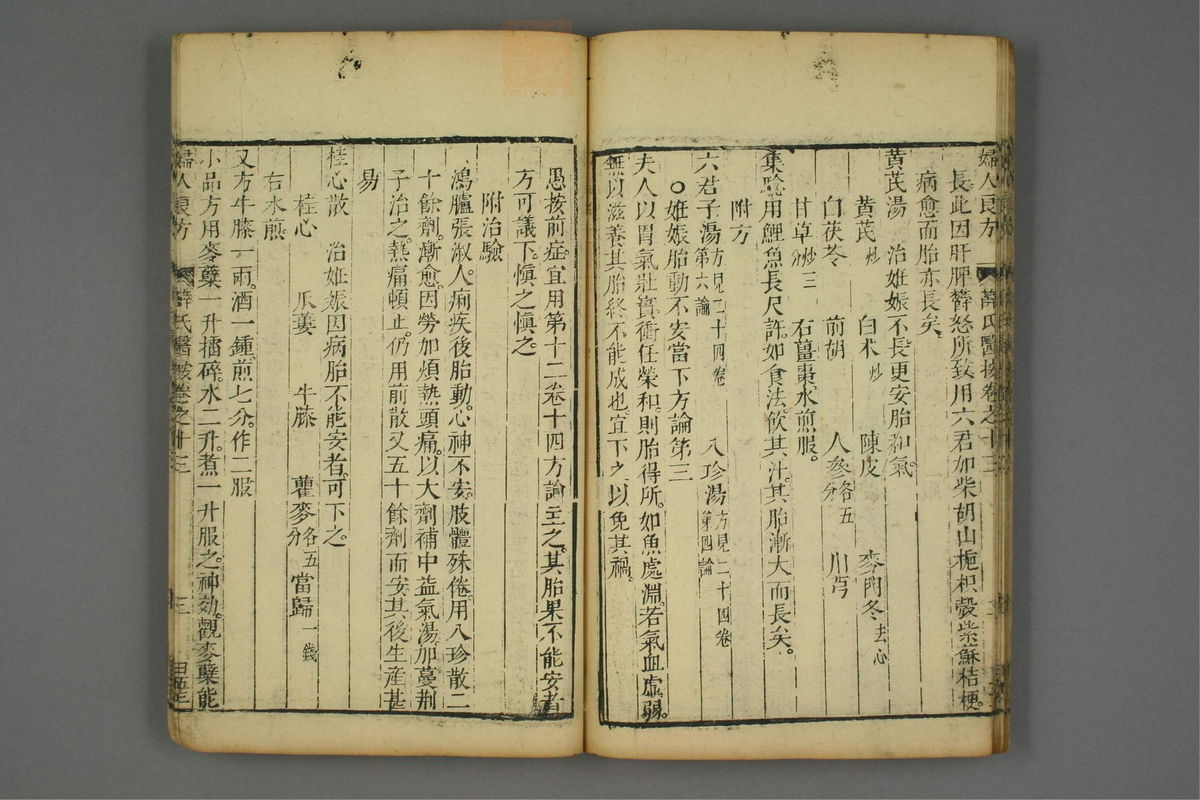 婦人良方　薛氏醫按卷之十三
長此因肝脾鬱怒所致用六君加柴胡山梔枳殼紫蘇桔梗。
病愈而胎亦長矣。
黃芪湯　治姙娠不長更安胎和氣。
黃芪炒　白朮炒　陳皮　麥門冬去心
白茯苓　前胡　人參各五分　川芎
甘草炒三分　右薑棗水煎服。
集驗用鯉魚長尺許。如食法。飲其汁。其胎漸大而長矣。
附方
六君子湯方見二十四卷第六論　八珍湯方見二十四卷第四論
○姙娠胎動不安當下方論第三
夫人以胃氣壯實。衝任榮和。則胎得所。如魚處淵。若氣血虛弱。
無以滋養其胎。終不能成也。宜下之以免其禍。
愚按前症。宜用第十二卷十四方論主之。其胎果不能安者
方可議下。愼之愼之。
附治驗
鴻臚張淑人。痢疾後胎動。心神不安。肢體殊倦。用八珍散二
十餘劑漸愈。因勞加煩熱頭痛。以大劑補中益氣湯。加蔓荆
子治之。熱痛頓止。仍用前散又五十餘劑而安。其後生産甚
易
桂心散　治姙娠因病胎不能安者。可下之。
桂心　瓜蔞　牛膝　瞿麥各五分　當歸一錢
右水煎
又方牛膝一兩。酒一鍾。煎七分。作二服
小品方用麥櫱一升擂碎。水二升。煮一升服之。神効。觀麥櫱能
婦人良方　薛氏醫按卷之十三　三